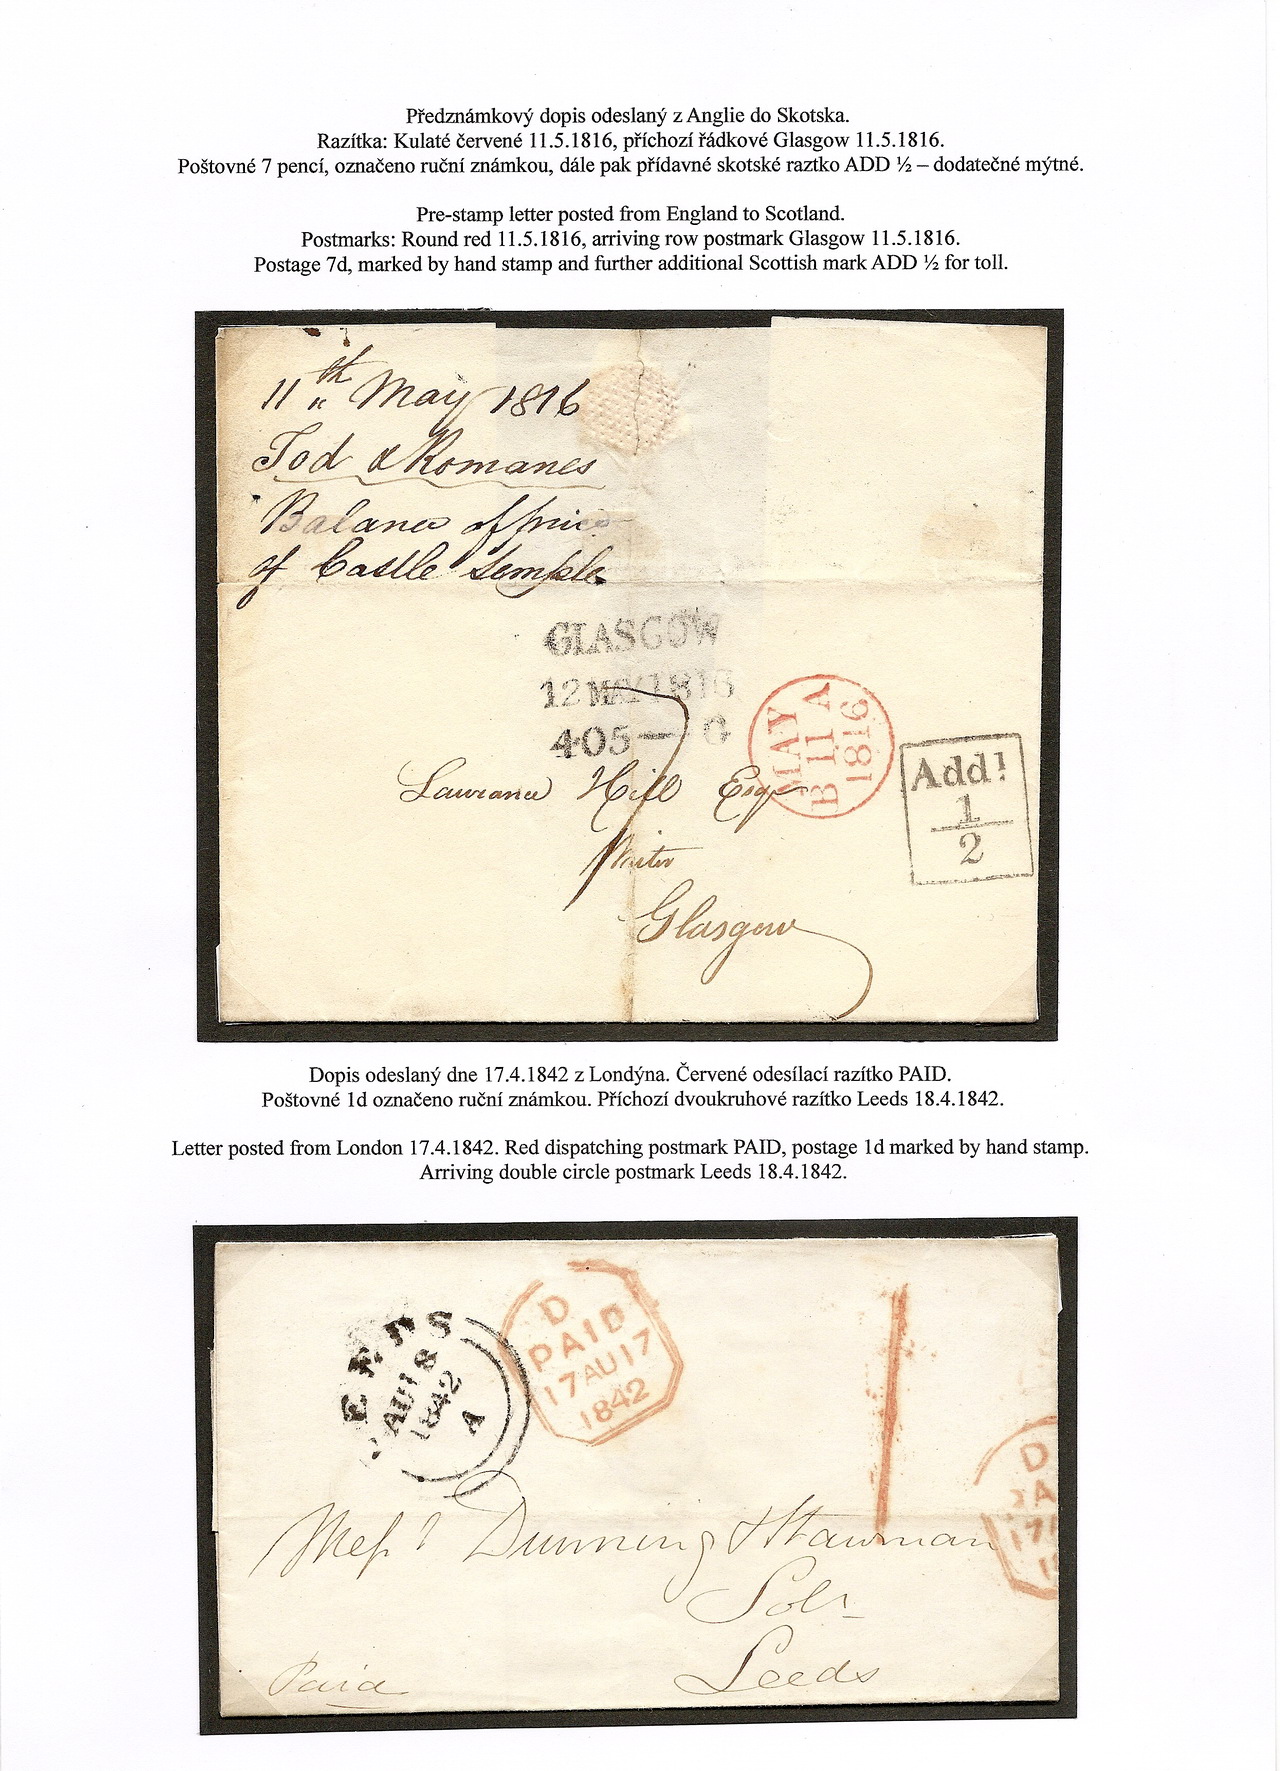 Předznámkový dopis odeslaný z Anglie do Skotska.
Razítka: Kulaté červené 11.5.1816, příchozí řádkové Glasgow 11.5.1816.
Poštovné 7 pencí, označeno ruční známkou, dále pak přídavné skotské raztko ADD ½ – dodatečné mýtné.
Pre-stamp letter posted from England to Scotland.
Postmarks: Round red 11.5.1816, arriving row postmark Glasgow 11.5.1816.
Postage 7d, marked by hand stamp and further additional Scottish mark ADD ½ for toll.
11th May 1816
Tod & Romanes
Balance of price
of Castle Semple
GLASGOW
12 MAY 1816
405— G
MAY
B 11 A
1816
Add!
1
2
7
Laurance Hill Esqr
Writer
Glasgow
Dopis odeslaný dne 17.4.1842 z Londýna. Červené odesílací razítko PAID.
Poštovné 1d označeno ruční známkou. Příchozí dvoukruhové razítko Leeds 18.4.1842.
Letter posted from London 17.4.1842. Red dispatching postmark PAID, postage 1d marked by hand stamp.
Arriving double circle postmark Leeds 18.4.1842.
LEEDS
AU 18
1842
A
D
PAID
17 AU 17
1842
1
D
PA
17
1
Messrs Dunning & Stawman
Solrs
Leeds
Paid